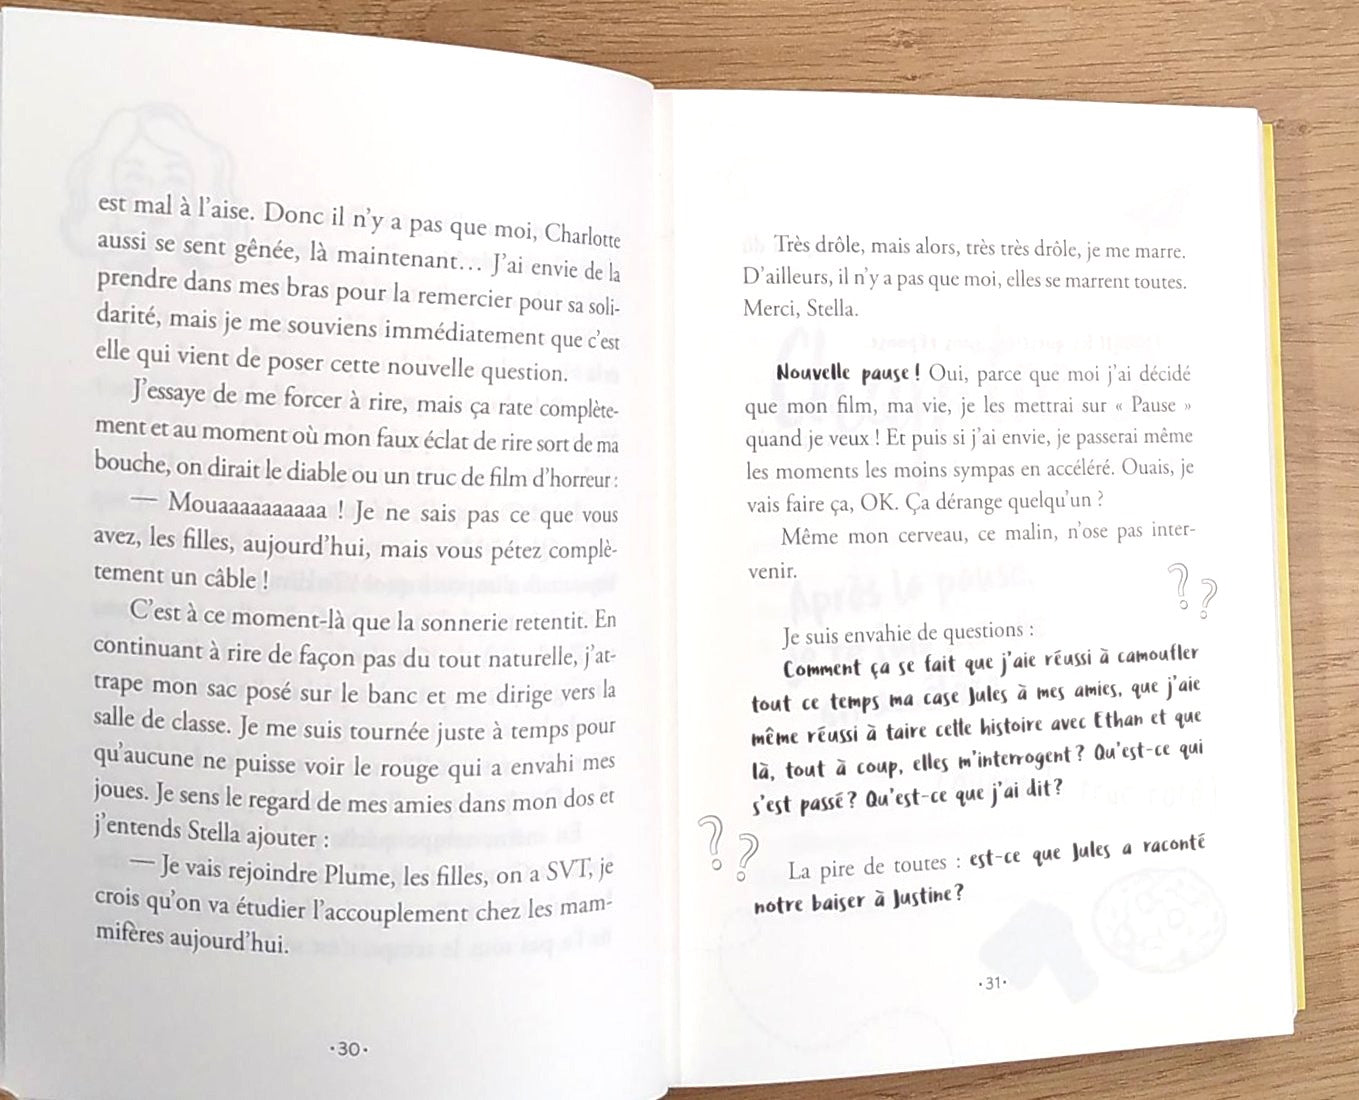 est mal à l'aise. Donc il n'y a pas que moi, Charlotte
aussi se sent gênée, là maintenant… J'ai envie de la
prendre dans mes bras pour la remercier pour sa soli-
darité, mais je me souviens immédiatement que c'est
elle qui vient de poser cette nouvelle question.
J'essaye de me forcer à rire, mais ça rate complète-
ment et au moment où mon faux éclat de rire sort de ma
bouche, on dirait le diable ou un truc de film d'horreur :
— Mouaaaaaaaaaaa ! Je ne sais pas ce que vous
avez, les filles, aujourd'hui, mais vous pétez complè-
tement un câble !
C'est à ce moment-là que la sonnerie retentit. En
continuant à rire de façon pas du tout naturelle, j'at-
trape mon sac posé sur le banc et me dirige vers la
salle de classe. Je me suis tournée juste à temps pour
qu'aucune ne puisse voir le rouge qui a envahi mes
joues. Je sens le regard de mes amies dans mon dos et
j'entends Stella ajouter :
— Je vais rejoindre Plume, les filles, on a SVT, je
crois qu'on va étudier l'accouplement chez les mam-
mifères aujourd'hui.
·30·
Très drôle, mais alors, très très drôle, je me marre.
D'ailleurs, il n'y a pas que moi, elles se marrent toutes.
Merci, Stella.
Nouvelle pause ! Oui, parce que moi j'ai décidé
que mon film, ma vie, je les mettrai sur « Pause »
quand je veux ! Et puis si j'ai envie, je passerai même
les moments les moins sympas en accéléré. Ouais, je
vais faire ça, OK. Ça dérange quelqu'un ?
Même mon cerveau, ce malin, n'ose pas inter-
venir.
??
Je suis envahie de questions :
Comment ça se fait que j'aie réussi à camoufler
tout ce temps ma case Jules à mes amies, que j'aie
même réussi à taire cette histoire avec Ethan et que
là, tout à coup, elles m'interrogent ? Qu'est-ce qui
s'est passé ? Qu'est-ce que j'ai dit ?
??
La pire de toutes : est-ce que Jules a raconté
notre baiser à Justine ?
·31·